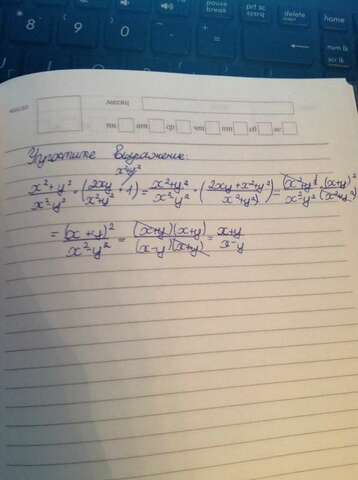 pause break
prt sc sysrq
delete
home
8
9
0
-
=
num lk
scr lk
число
месяц
пн вт ср чт пт сб вс
Упростите выражение:
x²+y²
x²+y²/x²-y² · (2xy/x²+y² + 1) = x²+y²/x²-y² · (2xy+x²+y²/x²+y²) = (x²+y²)·(x+y)²/x²-y²(x²+y²)
= (x+y)²/x²-y² = (x+y)(x+y)/(x-y)(x+y) = x+y/x-y